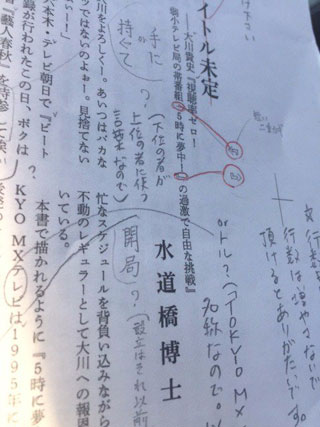 下さい
行数は増やさないで
頂けるとありがたいです。
orトル?(「TOKYO MX」
名称なので。
イトル未定
――大川貴史『視聴率ゼロ!
弱小テレビ局の帯番組『5時に夢中!』の過激で自由な挑戦』
水道橋博士
手に
持って?
(下位の者が
上位の者に使う
言葉なので)
開局?
(設立はそれ以前
川をよろしくー。あいつはバカな
ツではないのよぉー。見捨てない
ー!」
木・テレビ朝日で『ビート
録が行われたこの日、ボクは
『藝人春秋』を持参
忙なスケジュールを背負い込みながら
不動のレギュラーとして大川への報恩
いている。
本書で描かれるように『5時に夢
KYO MXテレビは1995年に